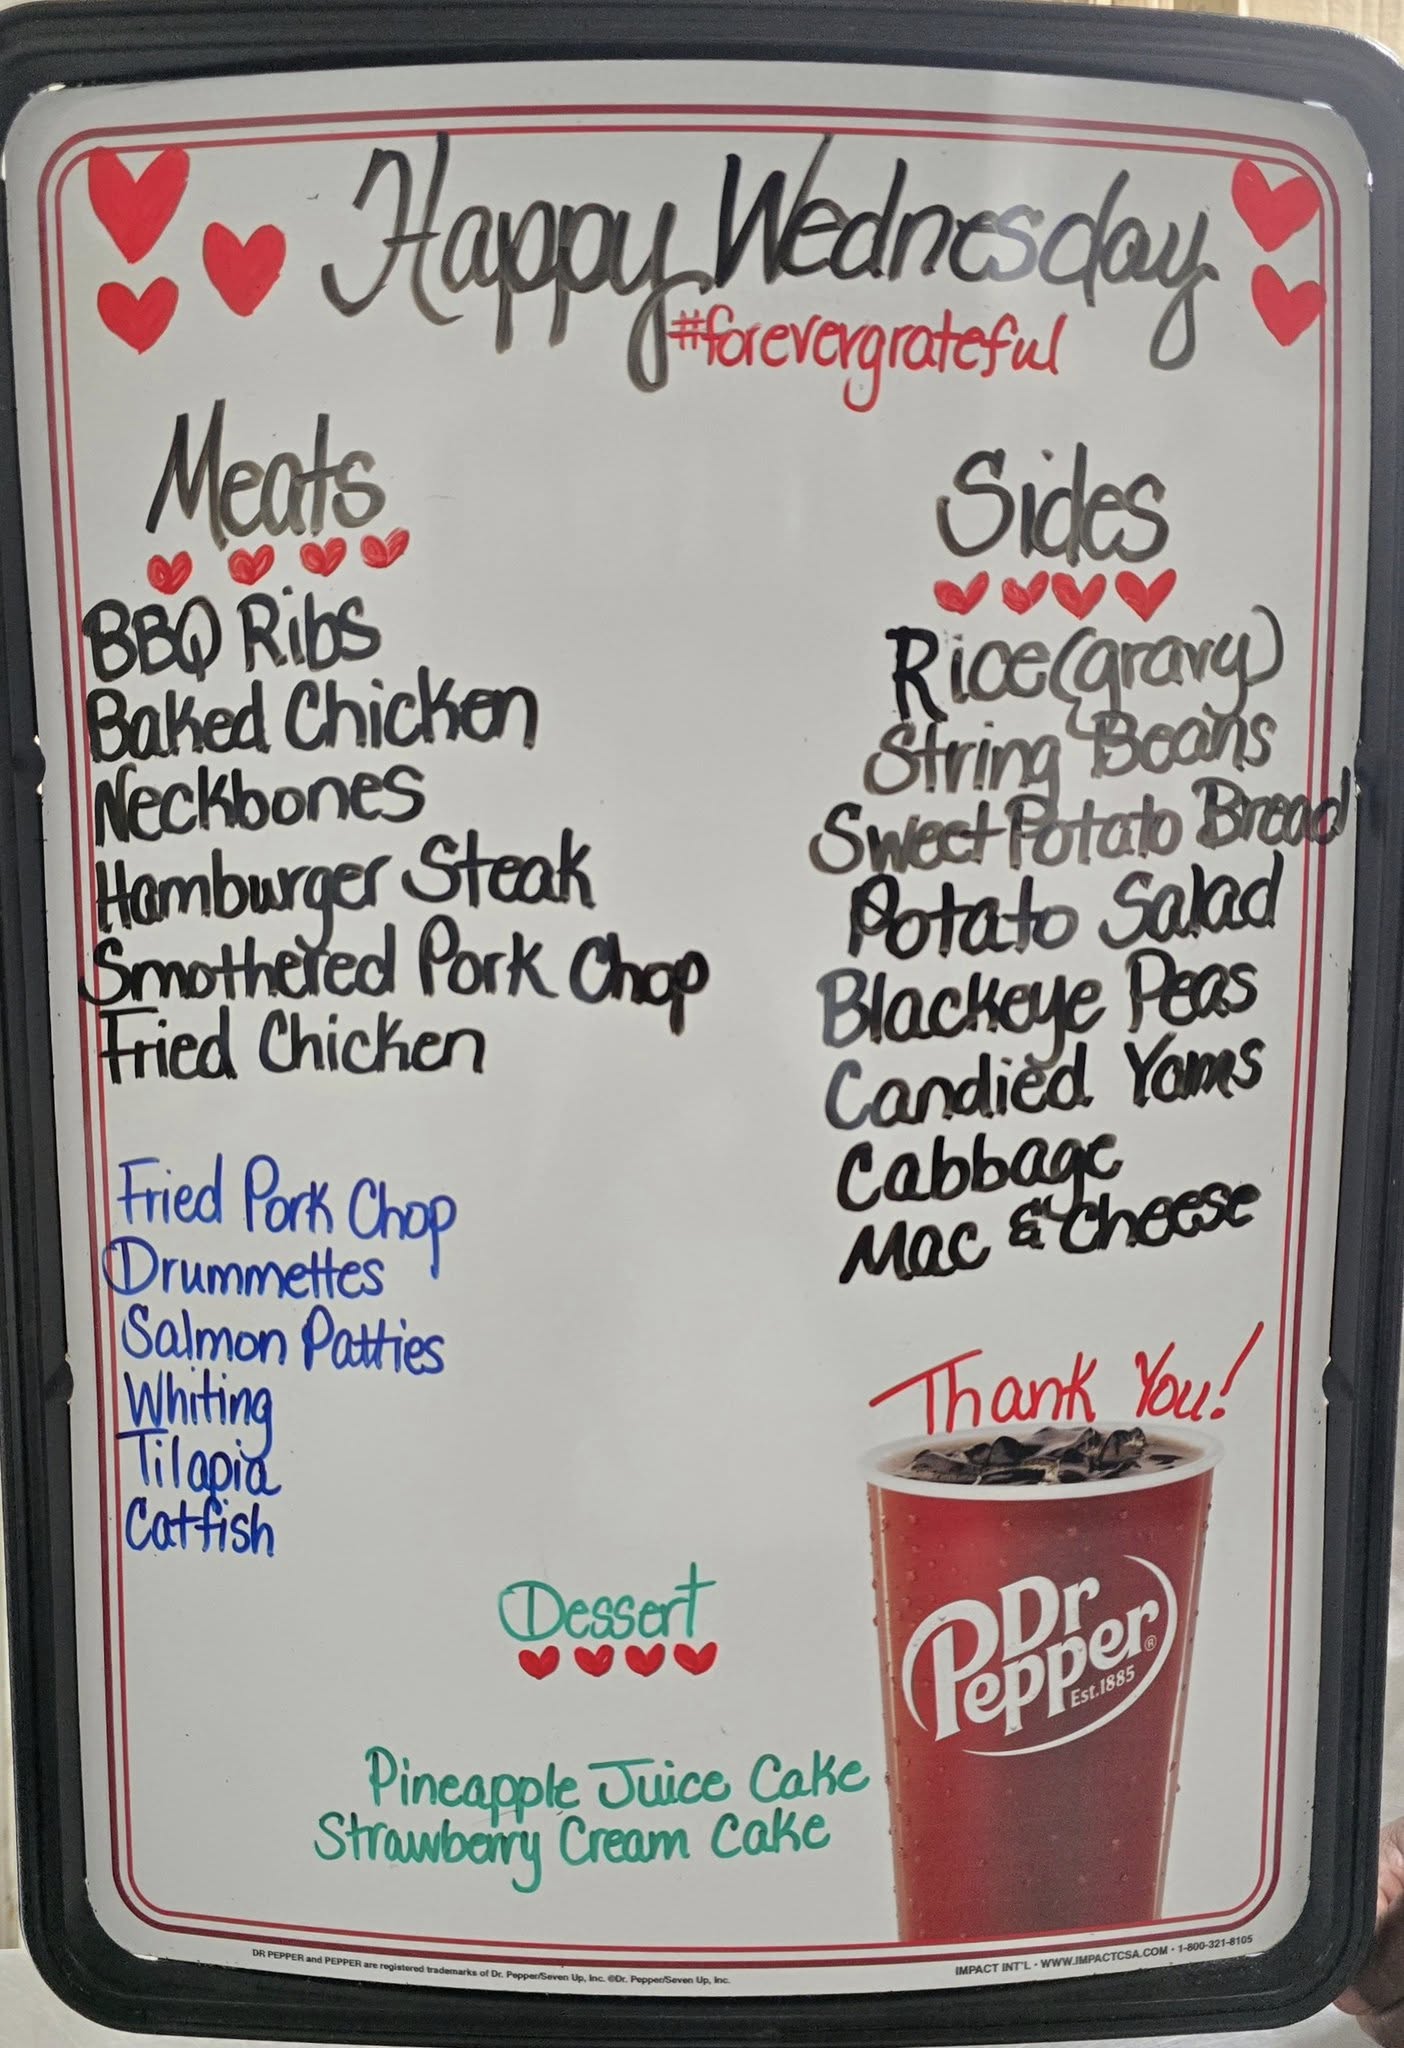 Happy Wednesday
#forevergrateful
Meats
BBQ Ribs
Baked Chicken
Neckbones
Hamburger Steak
Smothered Pork Chop
Fried Chicken
Fried Pork Chop
Drummettes
Salmon Patties
Whiting
Tilapia
Catfish
Sides
Rice (gravy)
String Beans
Sweet Potato Bread
Potato Salad
Blackeye Peas
Candied Yams
Cabbage
Mac & Cheese
Thank You!
Dr
Pepper®
Est.1885
Dessert
Pineapple Juice Cake
Strawberry Cream Cake
DR PEPPER and PEPPER are registered trademarks of Dr. Pepper/Seven Up, Inc. ©Dr. Pepper/Seven Up, Inc.
IMPACT INT'L • WWW.IMPACTCSA.COM • 1-800-321-8105